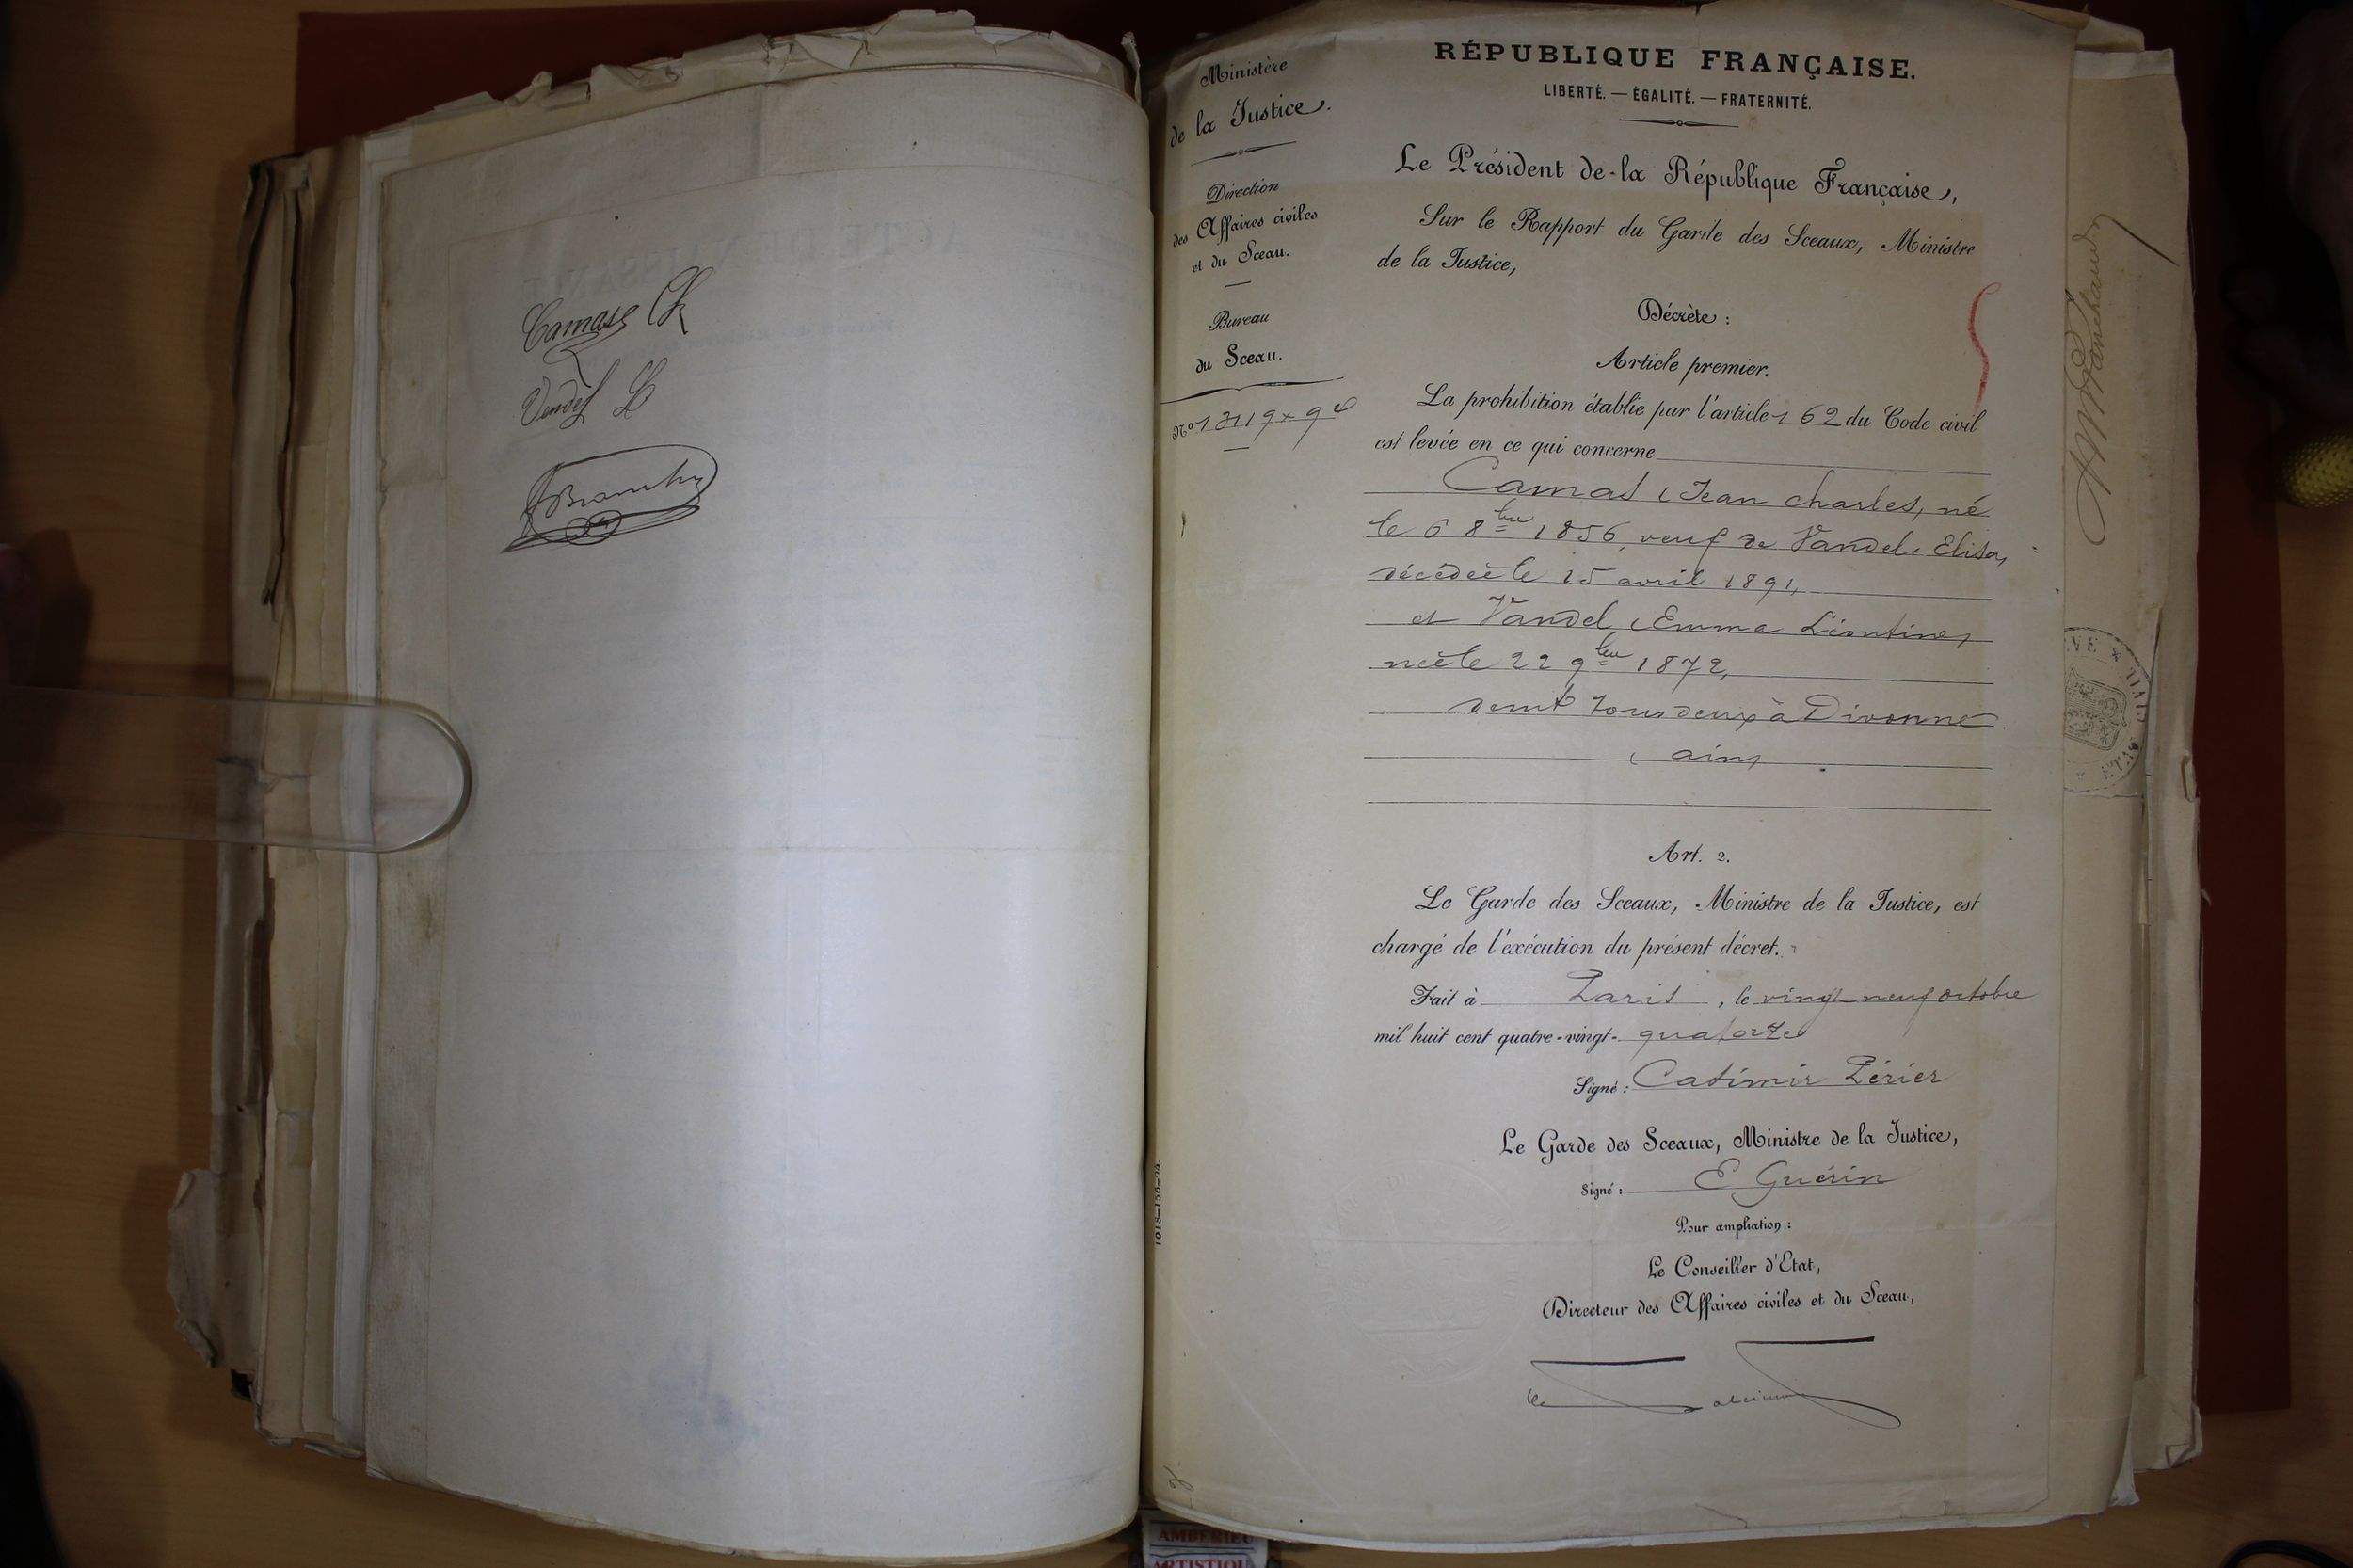 Camase Ch
Vandel L
Ministère
de la Justice.
Direction
des Affaires civiles
et du Sceau.
Bureau
du Sceau.
RÉPUBLIQUE FRANÇAISE.
LIBERTÉ. — ÉGALITÉ. — FRATERNITÉ.
Le Président de la République Française,
Sur le Rapport du Garde des Sceaux, Ministre
de la Justice,
Décrète :
Article premier.
La prohibition établie par l'article 162 du Code civil
est levée en ce qui concerne
Camas (Jean Charles, né
le 6 8bre 1856, veuf de Vandel, Elisa,
décédée le 15 avril 1891,
et Vandel (Emma Léontine)
née le 22 9bre 1872,
demt tous deux à Divonne
(ain)
Art. 2.
Le Garde des Sceaux, Ministre de la Justice, est
chargé de l'exécution du présent décret.
Fait à Paris, le vingt neuf octobre
mil huit cent quatre-vingt-quatorze
Signé : Casimir Périer
Le Garde des Sceaux, Ministre de la Justice,
Signé : E Guérin
Pour ampliation :
Le Conseiller d'Etat,
Directeur des Affaires civiles et du Sceau,
1018-156-94.
AMBERIEU
ARTISTIQU